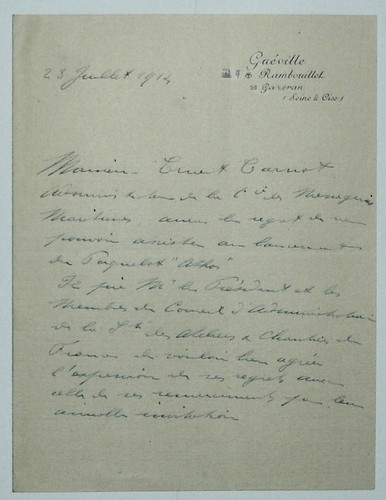 Guéville
Rambouillet
Gazeran
(Seine & Oise)
23 Juillet 1914
Monsieur Ernest Carnot
Administrateur de la Cie des Messageries
Maritimes aura le regret de ne
pouvoir assister au lancement
du Paquebot "Athos"
Il prie Mr le Président et les
Membres du Conseil d'Administration
de la Sté des Ateliers & Chantiers de
France de vouloir bien agréer
l'expression de ses regrets avec
celle de ses remerciements pour leur
aimable invitation